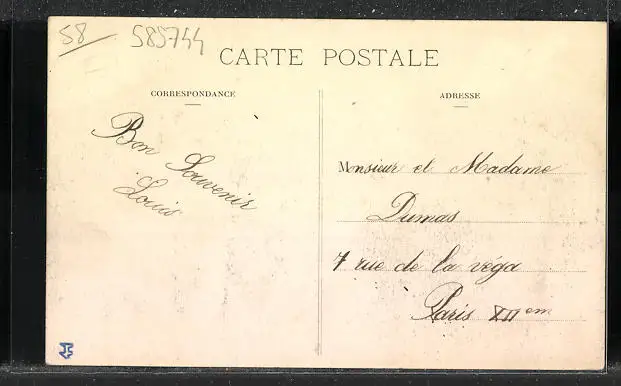 58
585744
CARTE POSTALE
CORRESPONDANCE
ADRESSE
Bon Souvenir
Louis
Monsieur et Madame
Dumas
7 rue de la véga
Paris XIIem